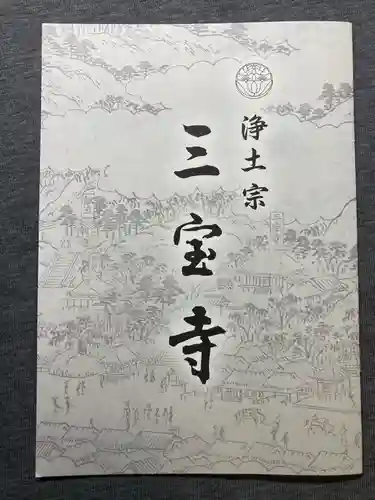 浄土宗
三宝寺